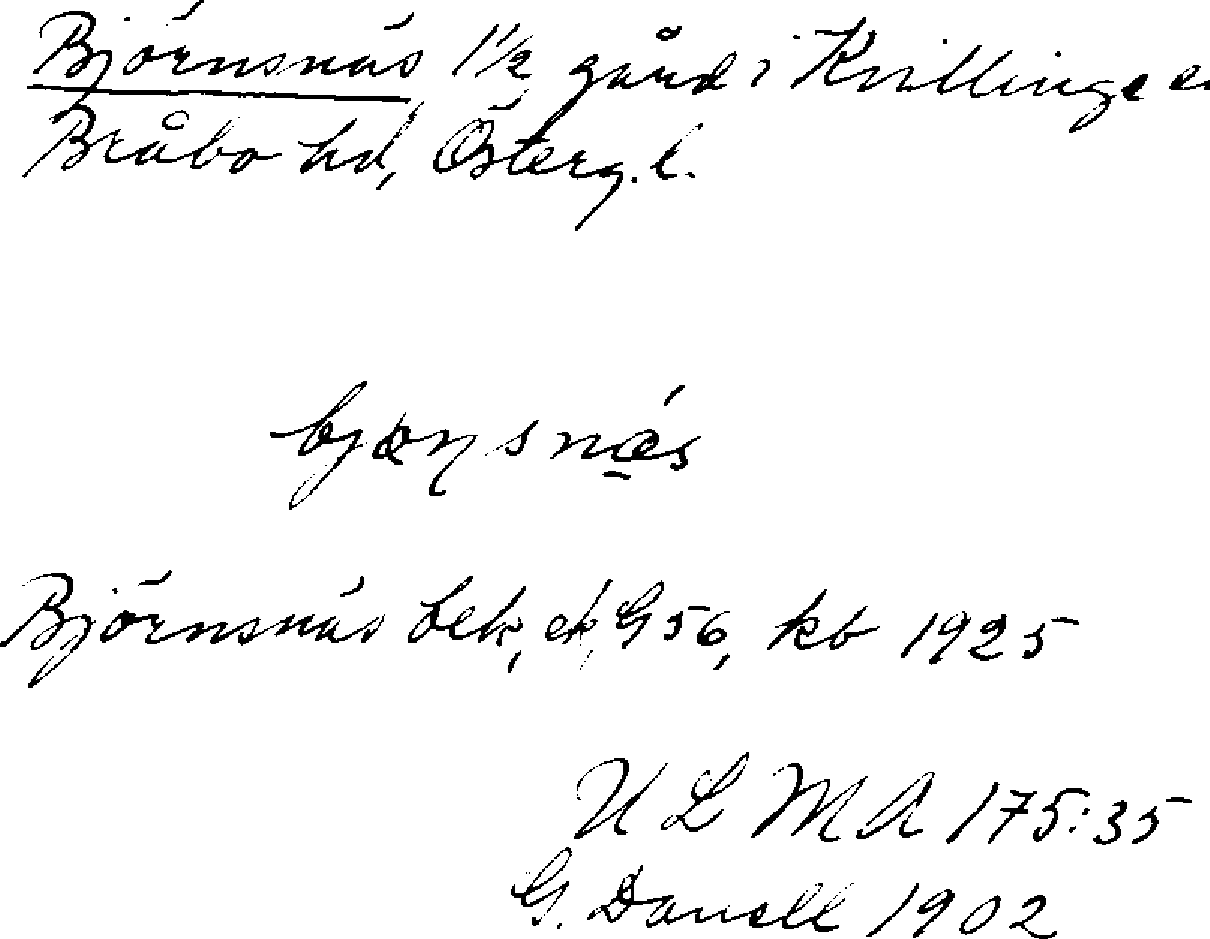 Björnsnäs 1 1/2 gård i Kvillinge
Bråbo hd, Österg. l.
Björnsnäs bek, ek, G 56, kb 1925
ULMA 175:35
G. Danell 1902